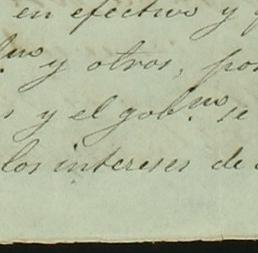 en efectivo y
y otros, por
y el gob.no se
los intereses de